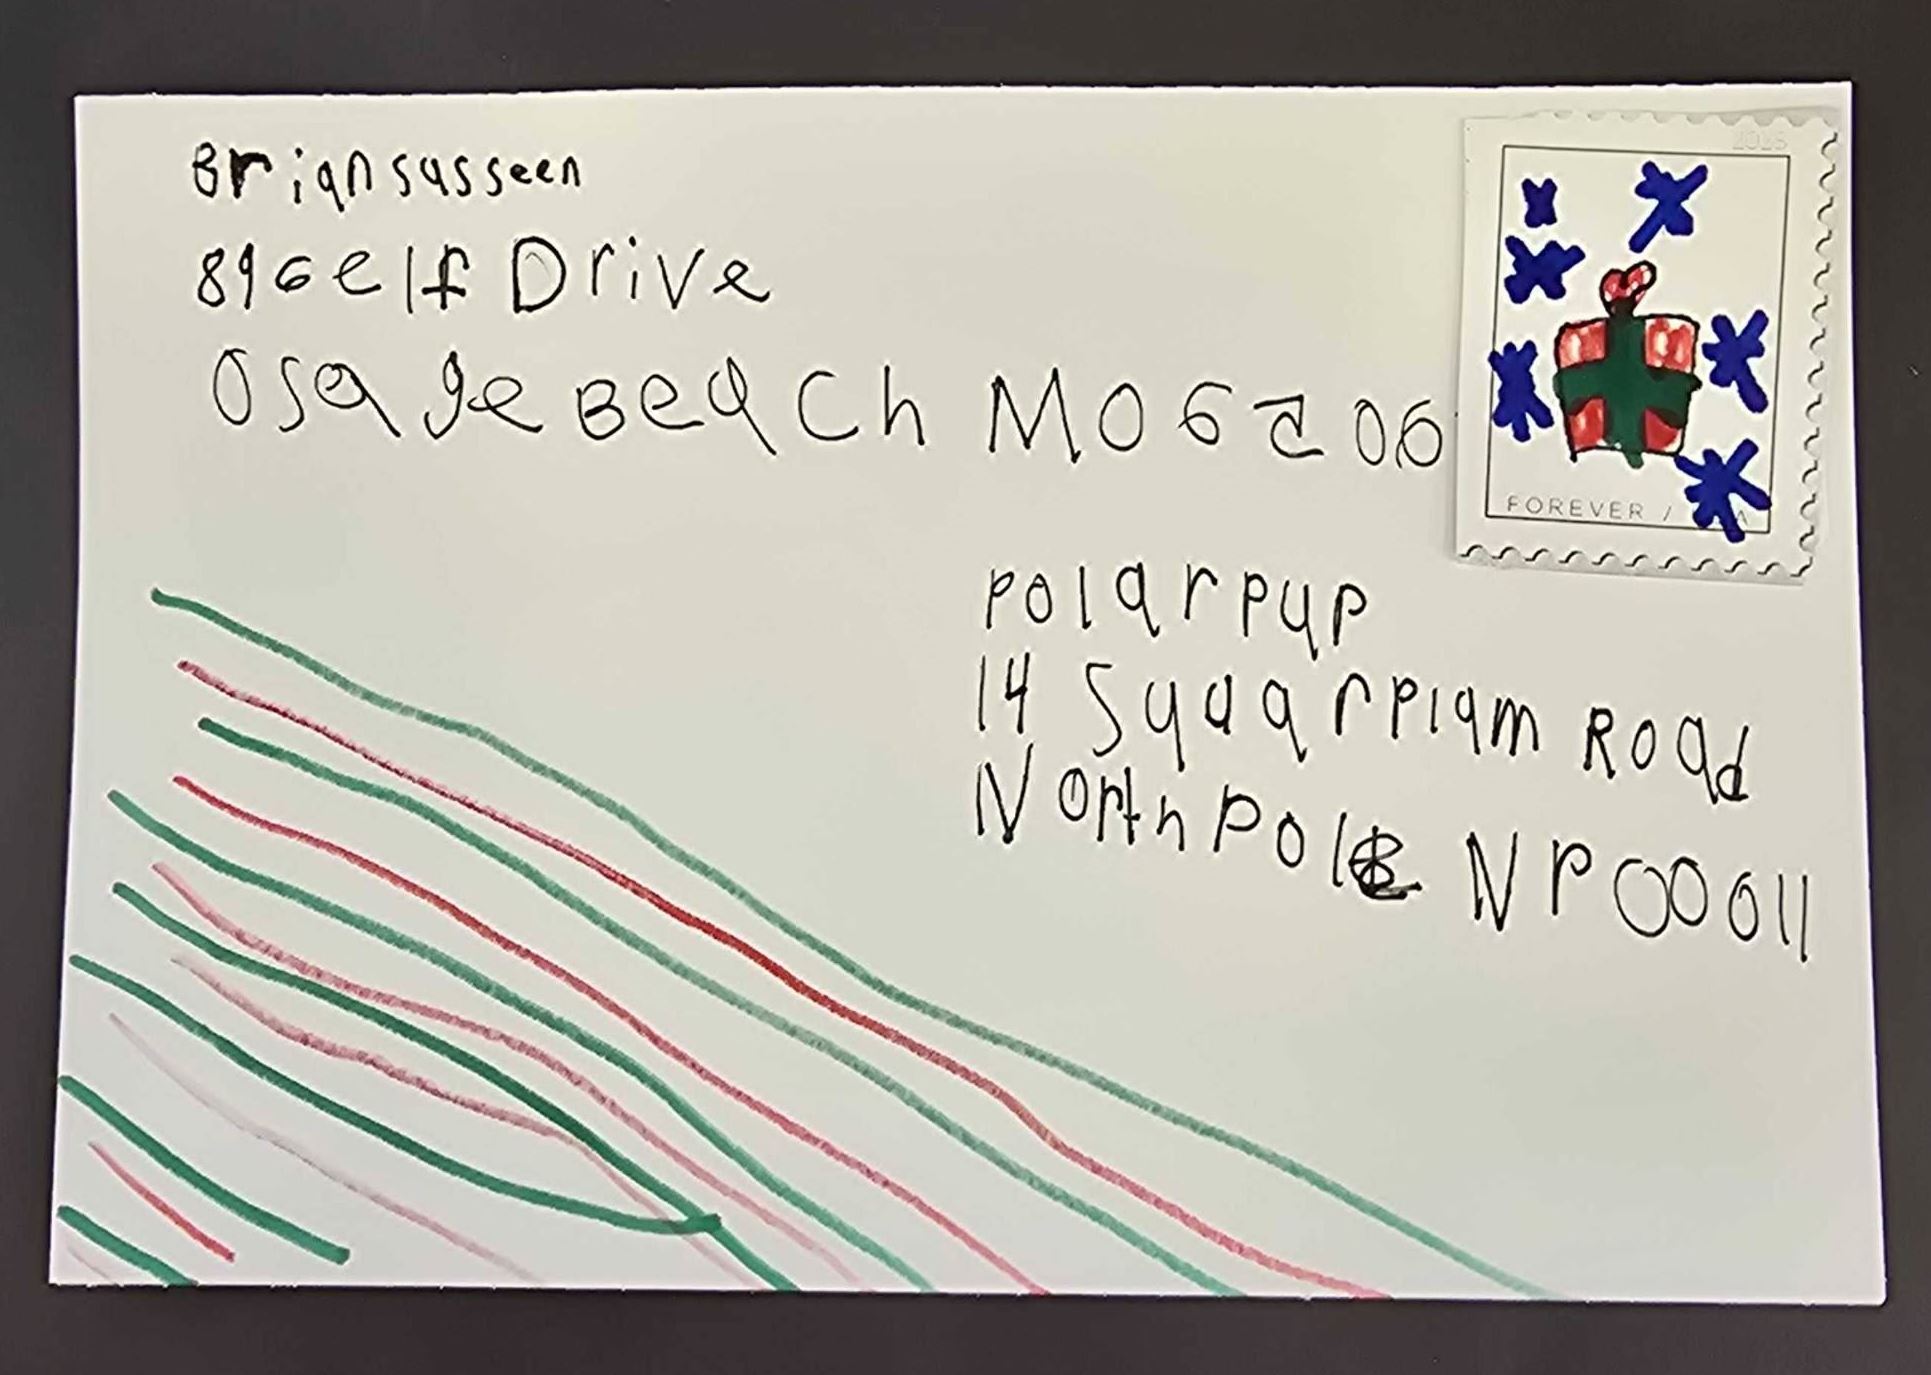 Briansasseen
896 elf Drive
Osage Beach MO 6206
2025
FOREVER /
polar pup
14 Squarplam Road
North Pole NP 00011